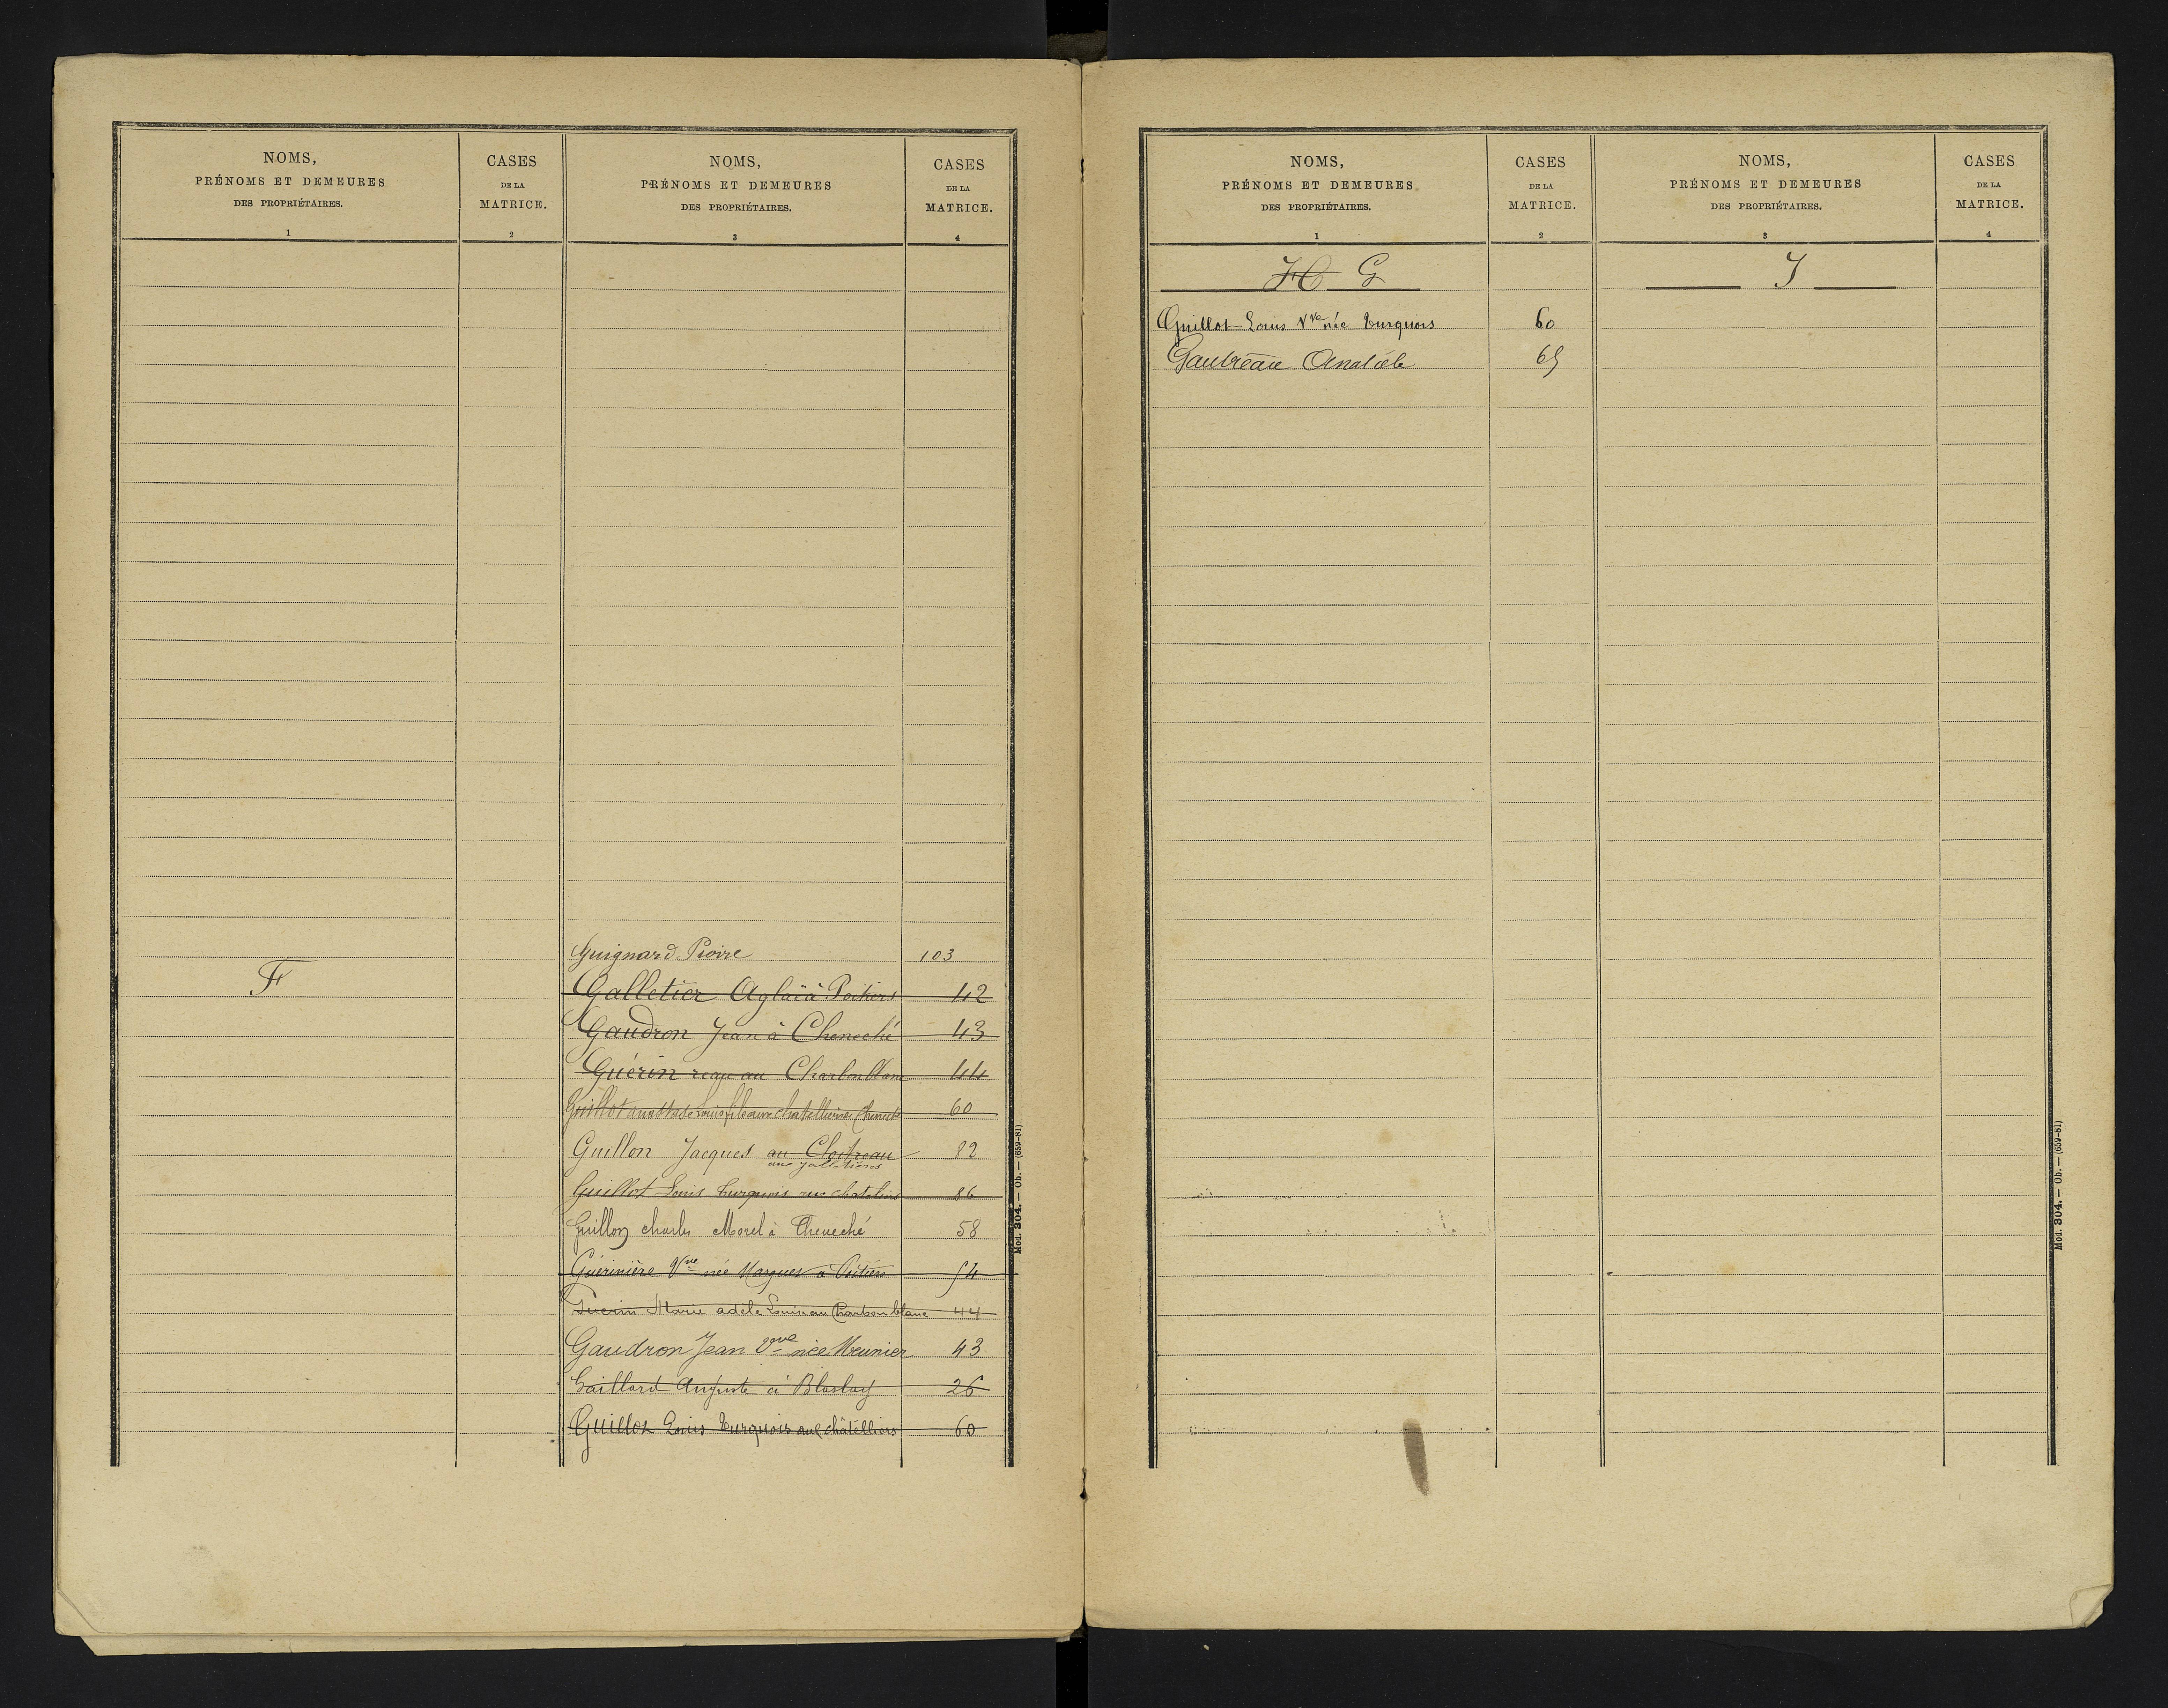 NOMS,
PRÉNOMS ET DEMEURES
DES PROPRIÉTAIRES.
1
CASES
DE LA
MATRICE.
2
NOMS,
PRÉNOMS ET DEMEURES
DES PROPRIÉTAIRES.
3
CASES
DE LA
MATRICE.
4
F
Guignard Pierre 103
Galletier Aglaë à Poitiers 42
Gaudron Jean à Cheneché 43
Guérin au Charbon Blanc 44
Guillot Louis fils aux chatelliers Cheneché 60
Guillon Jacques au Cloitreau 82
aux
Guillot Louis Turquois aux chateliers 86
Guillon charles Morel à Cheneché 58
Guérinière Vve née Marques à Poitiers 54
Guerin Marie adèle Louise au Charbon blanc 44
Gaudron Jean Vve née Meunier 43
Gaillard Auguste à Blaslay 26
Guillot Louis Turquois aux châtelliers 60
Mod. 304. — Ob. — (659-81)
NOMS,
PRÉNOMS ET DEMEURES
DES PROPRIÉTAIRES.
1
CASES
DE LA
MATRICE.
2
NOMS,
PRÉNOMS ET DEMEURES
DES PROPRIÉTAIRES.
3
CASES
DE LA
MATRICE.
4
H G
I
Guillot Louis Vve née Turquois 60
Gautreau Anatole 65
Mod. 304. — Ob. — (659-81)